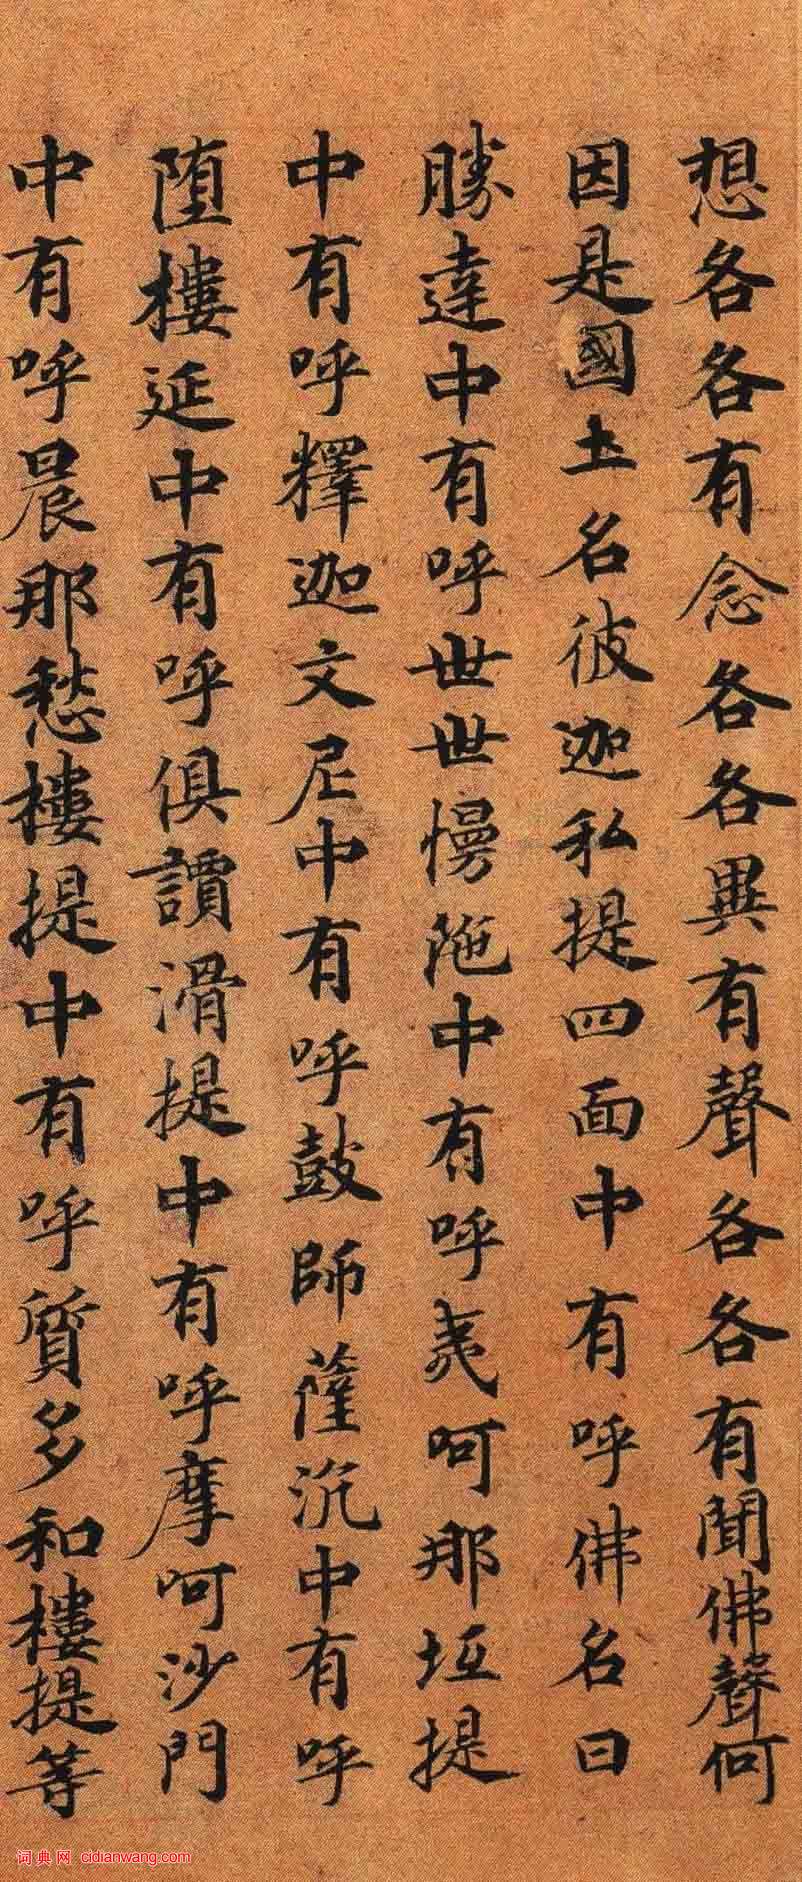 想各各有念各各異有聲各各有聞佛聲何
因是國土名彼迦私提四面中有呼佛名曰
勝達中有呼世世慢陁中有呼夷呵那坘提
中有呼釋迦文尼中有呼鼓師薩沉中有呼
墮樓延中有呼俱譚滑提中有呼摩呵沙門
中有呼晨那愁樓提中有呼質多和樓提等
词典网 cidianwang.com